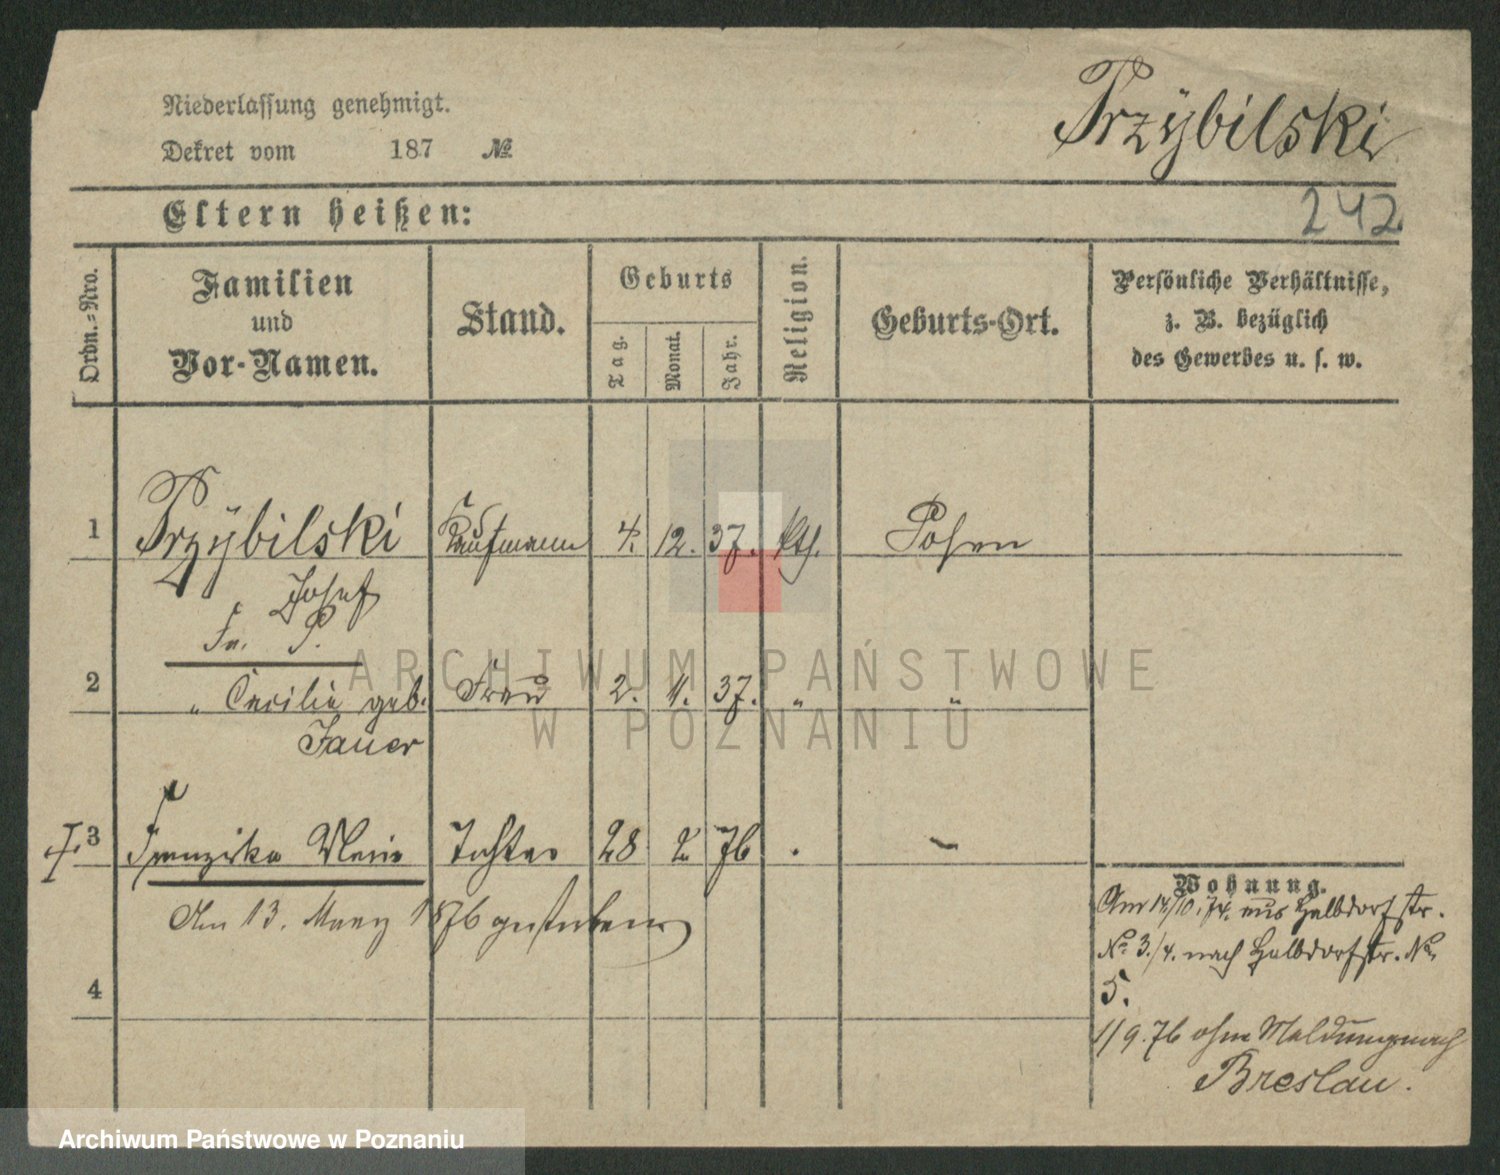 Niederlassung genehmigt.
Przÿbilski
Dekret vom 187 №
Eltern heißen:
242
Ordn.-Nro.
Familien
und
Vor-Namen.
Stand.
Geburts
Tag.
Monat.
Jahr.
Religion.
Geburts-Ort.
Persönliche Verhältnisse,
z. B. bezüglich
des Gewerbes u. s. w.
1 Przÿbilski Kaufmann 4. 12. 37. kth. Posen
Josef
Fr. P.
2 " Cecilie geb. Frau 2. 11. 37. " "
Jauer
3 Franziska Marie Tochter 28 2 76
Am 13. Maerz 1876 gestorben
4
Wohnung.
Am 14/10. 74. aus Halbdorfstr.
№ 3./4. nach Halbdorfstr. №
5.
1/9. 76 ohne Meldung nach
Breslau.
ARCHIWUM PAŃSTWOWE
W POZNANIU
Archiwum Państwowe w Poznaniu